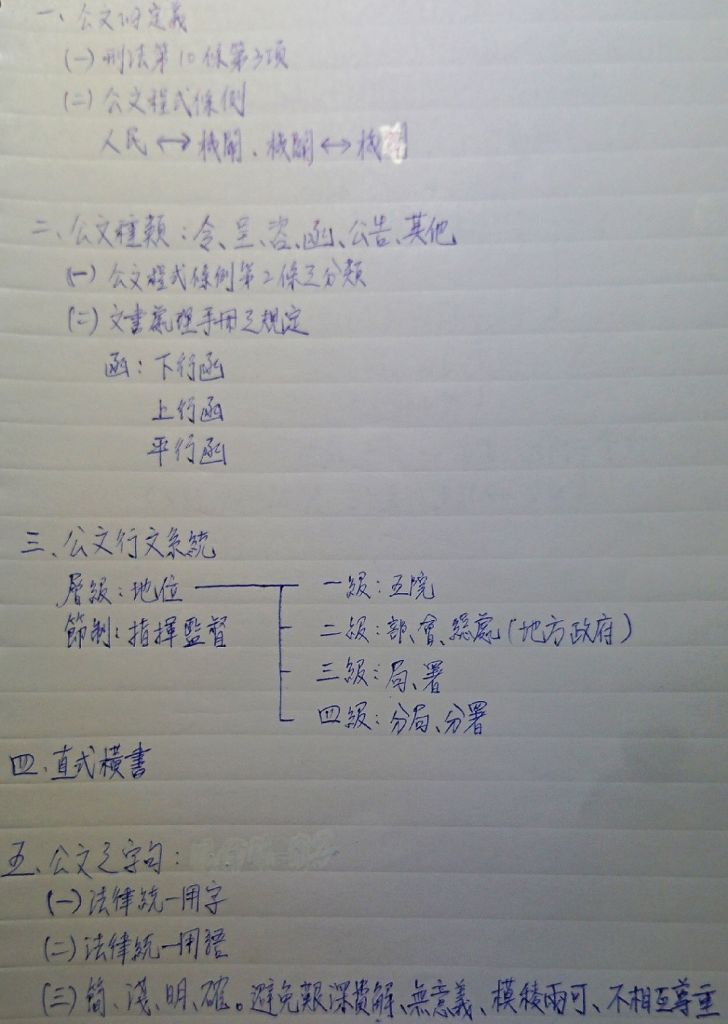 一、公文的定義
(一) 刑法第10條第3項
(二) 公文程式條例
人民 ↔ 機關、機關 ↔ 機關
二、公文種類：令、呈、咨、函、公告、其他
(一) 公文程式條例第2條之分類
(二) 文書處理手冊之規定
函：下行函
上行函
平行函
三、公文行文系統
層級：地位 一級：五院
節制：指揮監督 二級：部、會、總處(地方政府)
三級：局、署
四級：分局、分署
四、直式橫書
五、公文之字句：
(一) 法律統一用字
(二) 法律統一用語
(三) 簡、淺、明、確。避免艱深費解、無意義、模稜兩可、不相互尊重